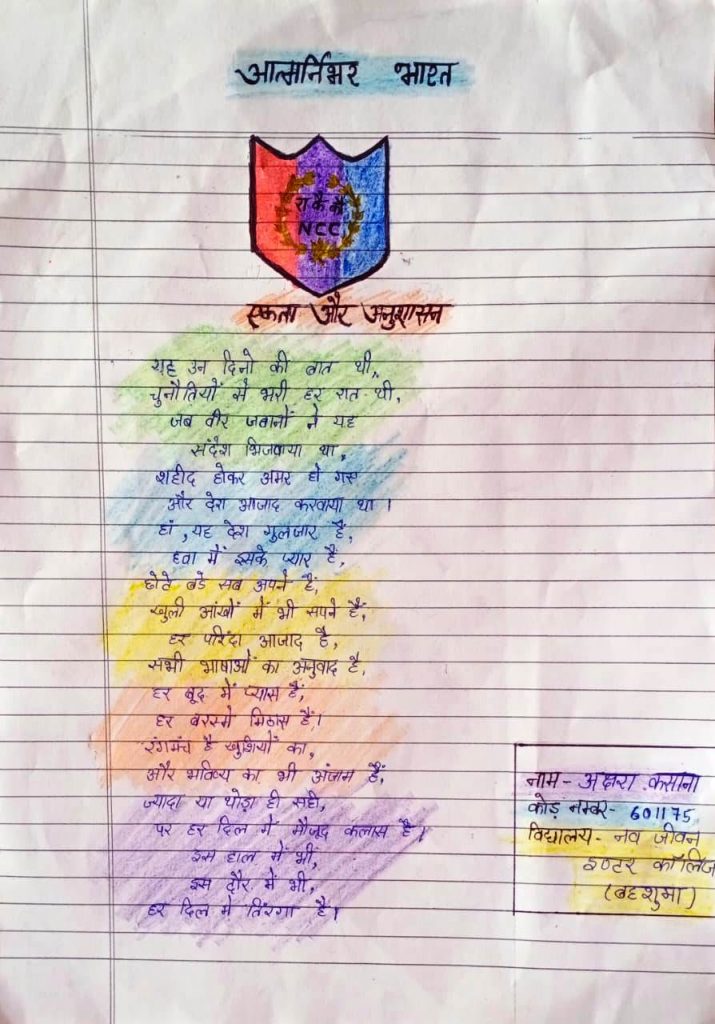 आत्मर्निभर भारत
रा कै कै
NCC
एकता और अनुशासन
यह उन दिनो की बात थी,
चुनौतियों से भरी हर रात थी,
जब वीर जवानों ने यह
संदेश भिजवाया था,
शहीद होकर अमर हो गए
और देश आजाद करवाया था ।
हां ,यह देश गुलजार है,
हवा में इसके प्यार है,
छोटे बडे सब अपने हैं,
खुली आंखों में भी सपने हैं,
हर परिंदा आजाद है,
सभी भाषाओं का अनुवाद है,
हर बूद में प्यास हैं,
हर बरस्मे मिठास हैं।
रंगमंच है खुशियों का,
और भविष्य का भी अंजाम हैं,
ज्यादा या थोड़ा ही सही,
पर हर दिल में मौजूद कलास है।
इस हाल में भी,
इस दौर में भी,
हर दिल मे तिंरगा है।
नाम- अक्षरा कसाना
कोड़ नम्बर- 601175
विद्यालय- नव जीवन
इण्टर कॉलिज
(बहशुमा)